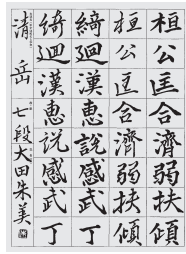 桓公匡合濟弱扶傾
桓公匡合濟弱扶傾
綺迴漢惠説感武丁
綺迴漢恵説感武丁
清岳 七段 大田朱美